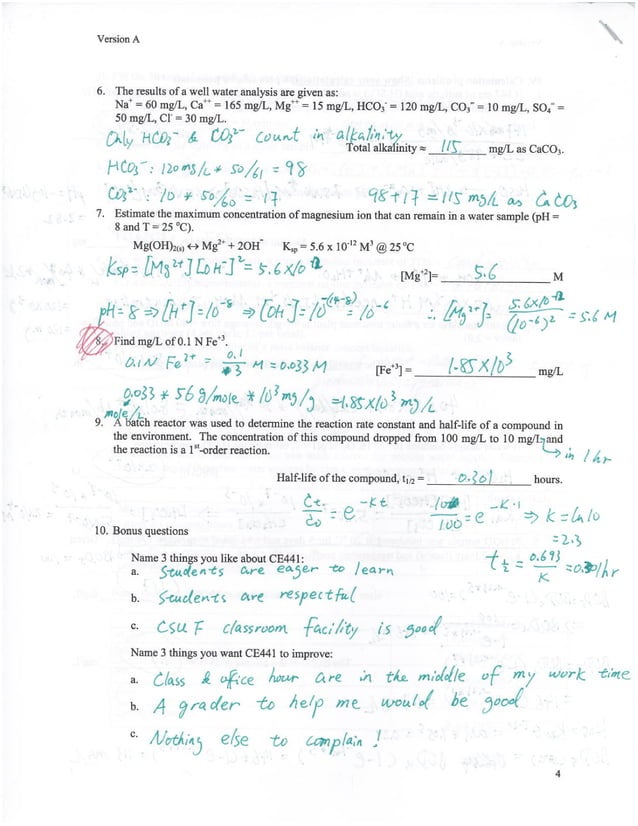 Version A
6. The results of a well water analysis are given as:
Na⁺ = 60 mg/L, Ca⁺⁺ = 165 mg/L, Mg⁺⁺ = 15 mg/L, HCO₃⁻ = 120 mg/L, CO₃⁼ = 10 mg/L, SO₄⁼ =
50 mg/L, Cl⁻ = 30 mg/L.
Only HCO₃⁻ & CO₃²⁻ count in alkalinity
Total alkalinity ≈ 115 mg/L as CaCO₃.
HCO₃⁻: 120 mg/L * 50/61 = 98
CO₃²⁻: 10 * 50/60 = 17 98+17 = 115 mg/L as CaCO₃
7. Estimate the maximum concentration of magnesium ion that can remain in a water sample (pH =
8 and T = 25 °C).
Mg(OH)₂₍ₛ₎ ↔ Mg²⁺ + 2OH⁻ Kₛₚ = 5.6 x 10⁻¹² M³ @ 25 °C
Ksp = [Mg²⁺][OH⁻]² = 5.6 x 10⁻¹²
[Mg⁺²] = 5.6 M
pH = 8 ⇒ [H⁺] = 10⁻⁸ ⇒ [OH⁻] = 10⁻⁽¹⁴⁻⁸⁾ = 10⁻⁶ ∴ [Mg²⁺] = 5.6x10⁻¹²/(10⁻⁶)² = 5.6 M
8. Find mg/L of 0.1 N Fe⁺³.
0.1 N Fe²⁺ = 0.1/3 M = 0.033 M
[Fe⁺³] = 1.85 x 10³ mg/L
0.033 * 56 g/mole * 10³ mg/g = 1.85 x 10³ mg/L
mole/L
9. A batch reactor was used to determine the reaction rate constant and half-life of a compound in
the environment. The concentration of this compound dropped from 100 mg/L to 10 mg/L and
the reaction is a 1ˢᵗ-order reaction.
→ in 1 hr
Half-life of the compound, t₁/₂ = 0.301 hours.
Ct/C0 = e⁻ᴷᵗ 10/100 = e⁻ᴷ·¹ ⇒ K = ln10
= 2.3
t½ = 0.693/K = 0.301hr
10. Bonus questions
Name 3 things you like about CE441:
a. Students are eager to learn
b. Students are respectful
c. CSUF classroom facility is good
Name 3 things you want CE441 to improve:
a. Class & office hour are in the middle of my work time
b. A grader to help me would be good
c. Nothing else to complain!
4